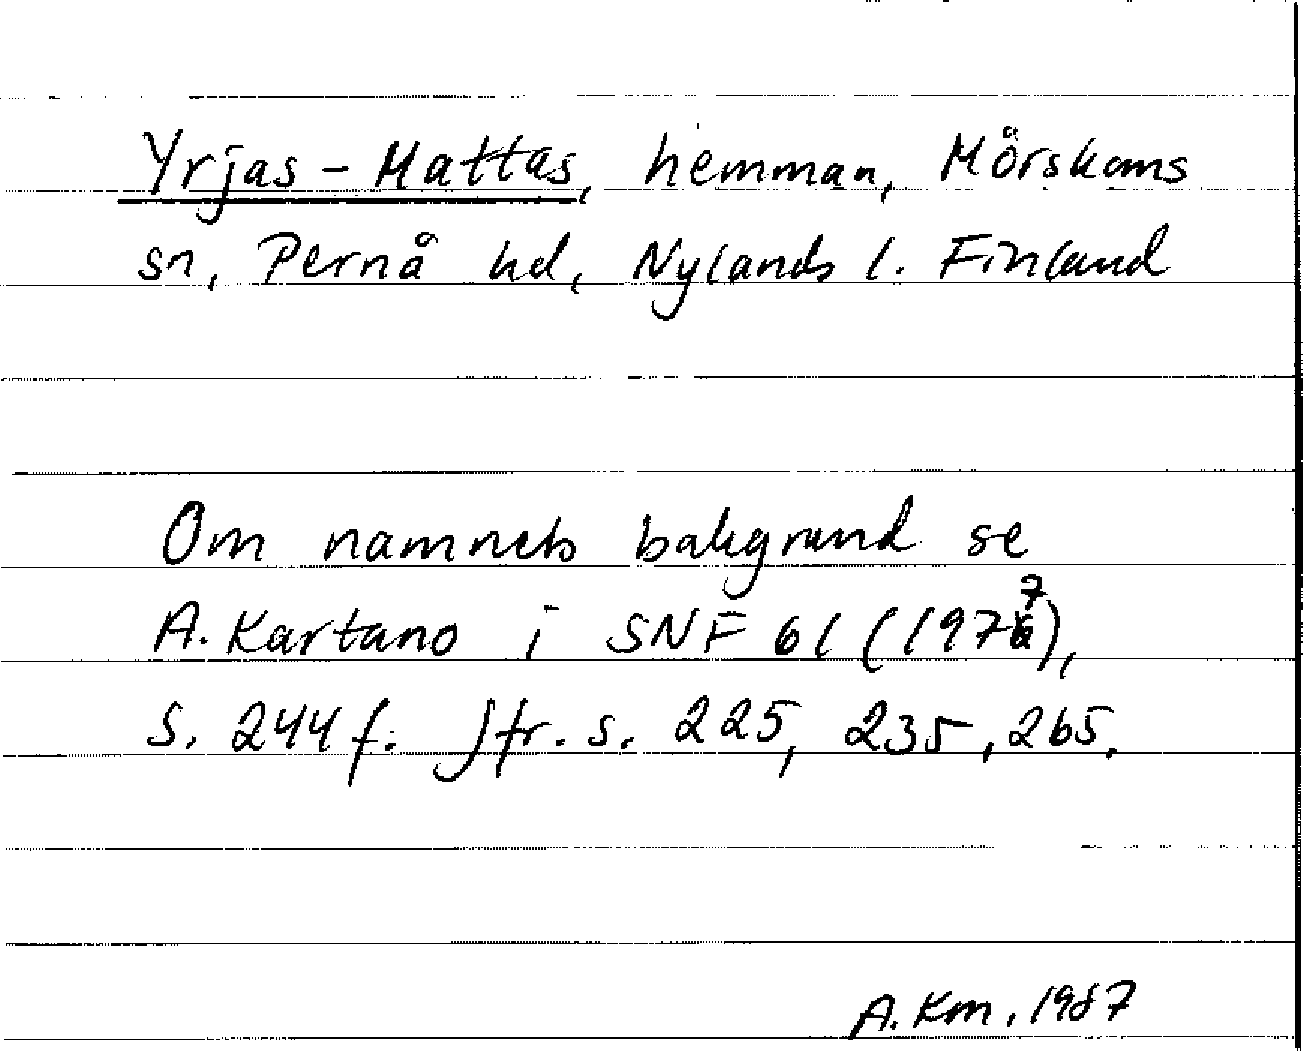 Yrjas-Mattas, hemman, Mörskoms
sn, Pernå hd, Nylands l. Finland
Om namnets bakgrund se
A. Kartano i SNF 61 (1977),
s. 244 f. Jfr. s. 225, 235, 265.
A. Km, 1987